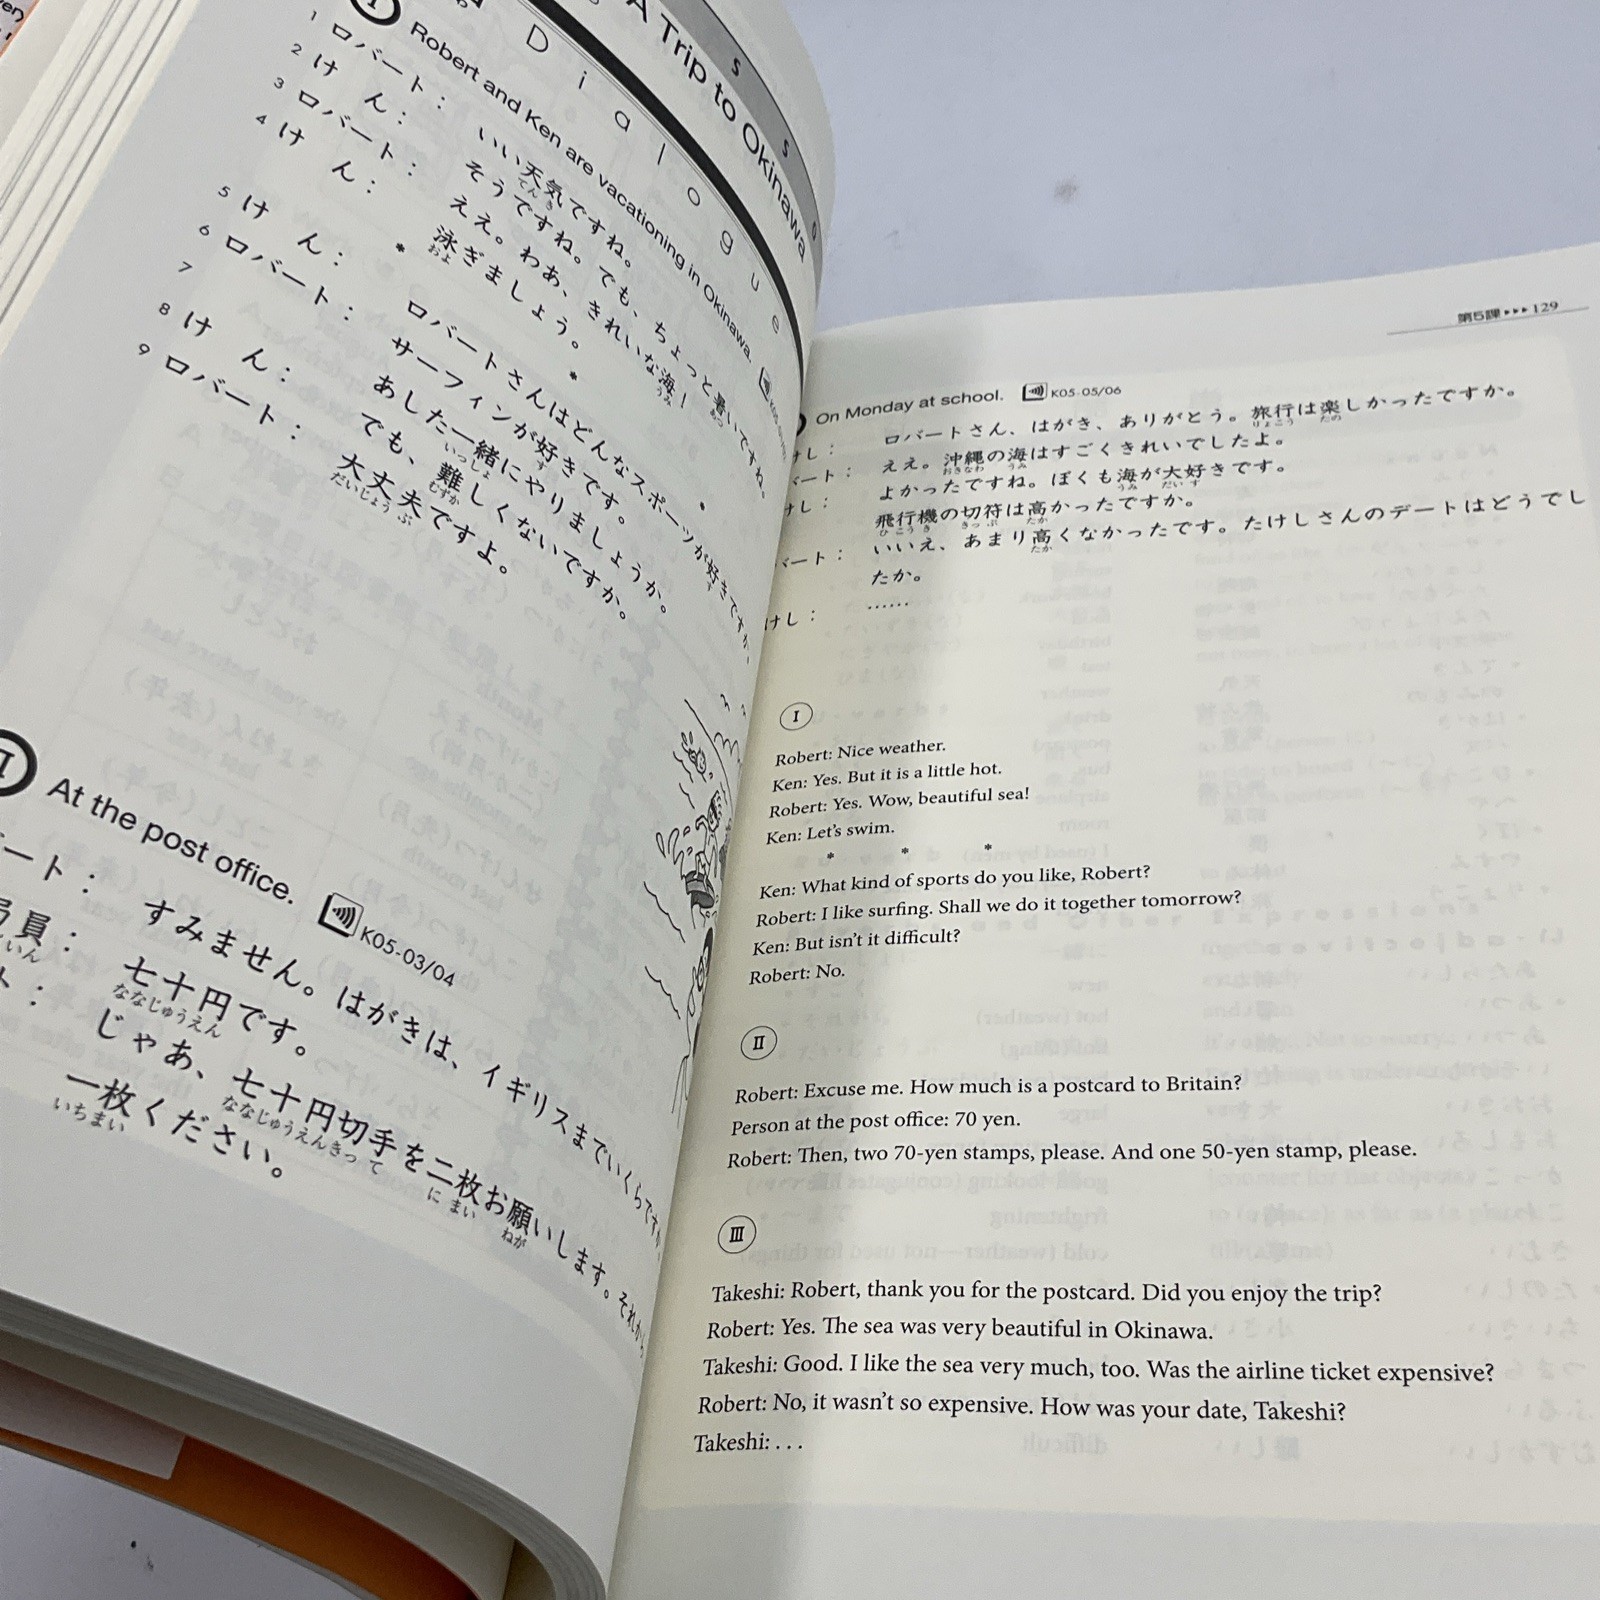 A Trip to Okinawa
Dialogue
I Robert and Ken are vacationing in Okinawa.
1 ロバート： いい天気ですね。
てんき
2 けん： そうですね。でも、ちょっと暑いですね。
あつ
3 ロバート： ええ。わあ、きれいな海！
うみ
4 けん： 泳ぎましょう。
およ
* * *
5 けん： ロバートさんはどんなスポーツが好きですか。
す
6 ロバート： サーフィンが好きです。
す
7 あした一緒にやりましょうか。
いっしょ
8 けん： でも、難しくないですか。
むずか
9 ロバート： 大丈夫ですよ。
だいじょうぶ
At the post office. K05-03/04
バート： すみません。はがきは、イギリスまでいくらですか
局員： 七十円です。
ななじゅうえん
ト： じゃあ、七十円切手を二枚お願いします。それから
ななじゅうえんきって にまい ねが
一枚ください。
いちまい
第5課 ▸▸▸ 129
On Monday at school. K05-05/06
けし： ロバートさん、はがき、ありがとう。旅行は楽しかったですか。
りょこう たの
バート： ええ。沖縄の海はすごくきれいでしたよ。
おきなわ うみ
けし： よかったですね。ぼくも海が大好きです。
うみ だいす
飛行機の切符は高かったですか。
ひこうき きっぷ たか
バート： いいえ、あまり高くなかったです。たけしさんのデートはどうでし
たか
たか。
けし： ……
I
Robert: Nice weather.
Ken: Yes. But it is a little hot.
Robert: Yes. Wow, beautiful sea!
Ken: Let's swim.
* * *
Ken: What kind of sports do you like, Robert?
Robert: I like surfing. Shall we do it together tomorrow?
Ken: But isn't it difficult?
Robert: No.
II
Robert: Excuse me. How much is a postcard to Britain?
Person at the post office: 70 yen.
Robert: Then, two 70-yen stamps, please. And one 50-yen stamp, please.
III
Takeshi: Robert, thank you for the postcard. Did you enjoy the trip?
Robert: Yes. The sea was very beautiful in Okinawa.
Takeshi: Good. I like the sea very much, too. Was the airline ticket expensive?
Robert: No, it wasn't so expensive. How was your date, Takeshi?
Takeshi: . . .